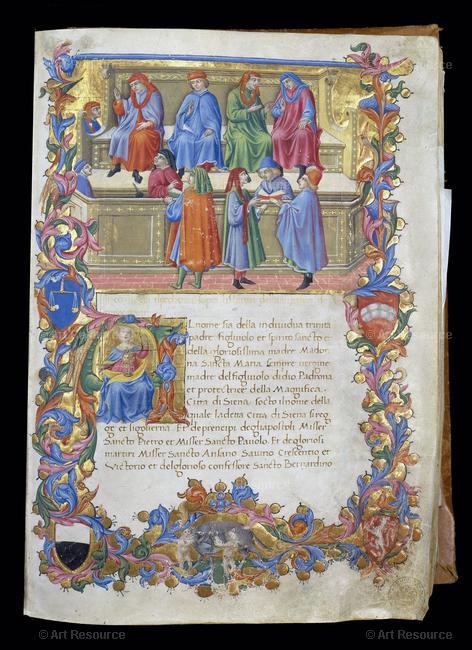 © Art Resource
© Art Resource
lnome sia della individua trinita
padre figliuolo et spirito sancto e
della gloriosissima madre Madon
na Sancta Maria sempre vergine
madre del figliuolo di dio Padrona
et protectrice della Magnifica
Citta di Siena socto il nome della
quale la decta Citta di Siena si reg
ge et si governa Et de principi degli apostoli Misser
Sancto Pietro et Misser Sancto Pavolo Et de gloriosi
martiri Misser Sancto Ansano Savino Crescentio et
Victorio et del glorioso confessore Sancto Bernardino
© Art Resource
© Art Resource